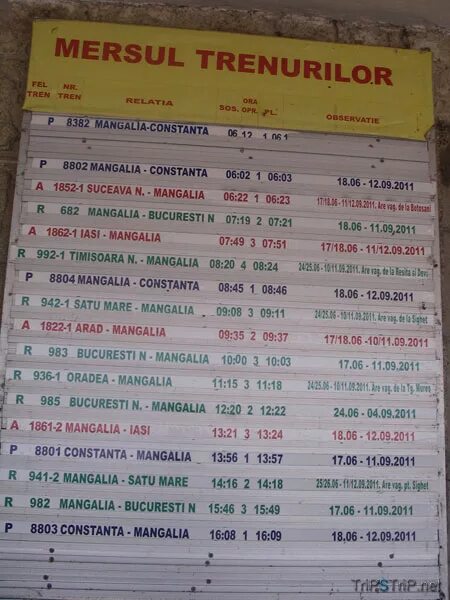 MERSUL TRENURILOR
FEL TREN NR. TREN RELATIA ORA SOS. OPR. PL. OBSERVATIE
P 8382 MANGALIA-CONSTANTA 06.12 1 06.1
P 8802 MANGALIA - CONSTANTA 06:02 1 06:03 18.06 - 12.09.2011
A 1852-1 SUCEAVA N. - MANGALIA 06:22 1 06:23 17/18.06 - 11/12.09.2011. Are vag. de la Botosani
R 682 MANGALIA - BUCURESTI N 07:19 2 07:21 18.06 - 11.09.2011
A 1862-1 IASI - MANGALIA 07:49 3 07:51 17/18.06 - 11/12.09.2011
R 992-1 TIMISOARA N. - MANGALIA 08:20 4 08:24 24/25.06 - 10/11.09.2011. Are vag. de la Resita si Devi
P 8804 MANGALIA - CONSTANTA 08:45 1 08:46 18.06 - 12.09.2011
R 942-1 SATU MARE - MANGALIA 09:08 3 09:11 24/25.06 - 10/11.09.2011. Are vag. de la Sighet
A 1822-1 ARAD - MANGALIA 09:35 2 09:37 17/18.06 -10/11.09.2011
R 983 BUCURESTI N - MANGALIA 10:00 3 10:03 17.06 - 11.09.2011
R 936-1 ORADEA - MANGALIA 11:15 3 11:18 24/25.06 - 10/11.09.2011. Are vag. de la Tg. Mures
R 985 BUCURESTI N. - MANGALIA 12:20 2 12:22 24.06 - 04.09.2011
A 1861-2 MANGALIA - IASI 13:21 3 13:24 18.06 - 12.09.2011
P 8801 CONSTANTA - MANGALIA 13:56 1 13:57 17.06 - 11.09.2011
R 941-2 MANGALIA - SATU MARE 14:16 2 14:18 25/26.06 - 11/12.09.2011. Are vag. pt. Sighet
R 982 MANGALIA - BUCURESTI N 15:46 3 15:49 17.06 - 11.09.2011
P 8803 CONSTANTA - MANGALIA 16:08 1 16:09 18.06 - 12.09.2011
TriPSTriP.net